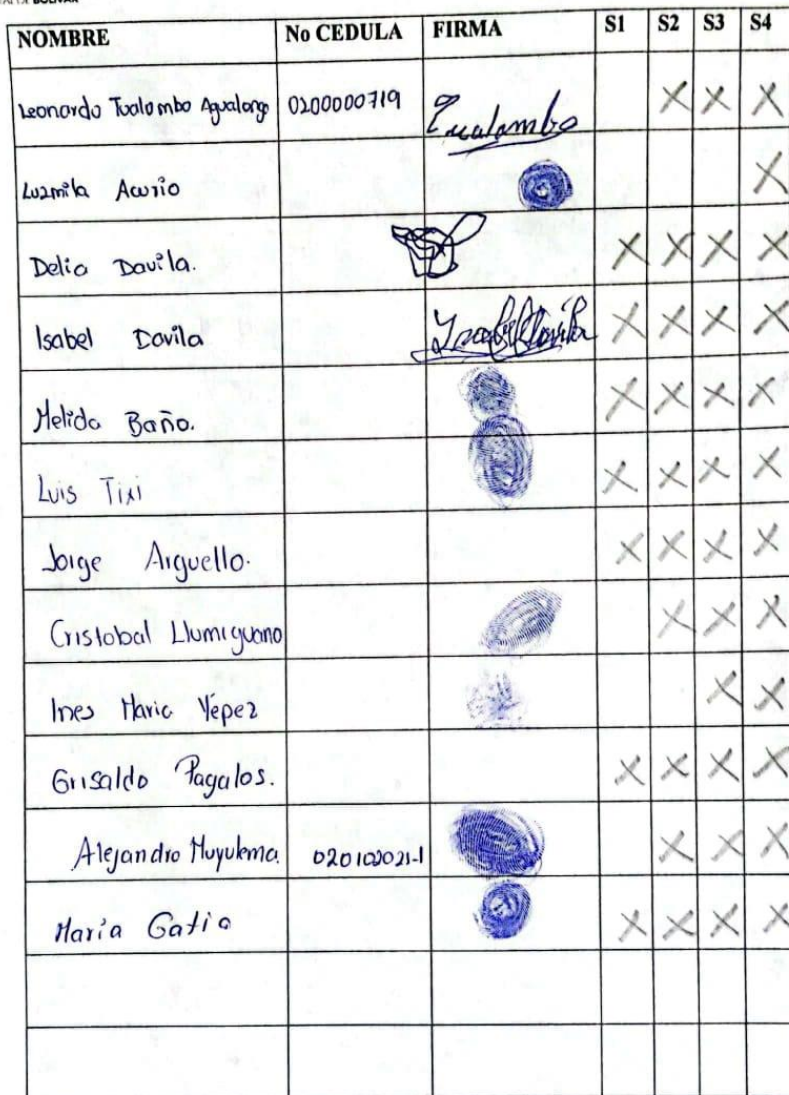 BOLIVAR
NOMBRE No CEDULA FIRMA S1 S2 S3 S4
Leonardo Tualombo Agualongo 0200000719 Tualombo X X X
Luzmila Acurio X
Delia Davila. X X X X
Isabel Davila Ysabel Davila X X X X
Melida Baño. X X X X
Luis Tixi X X X X
Jorge Arguello. X X X X
Cristobal Llumiguano X X X
Ines Maria Yépez X X
Grisaldo Pagalos. X X X X
Alejandro Muyulema X X X
Maria Gatia X X X X